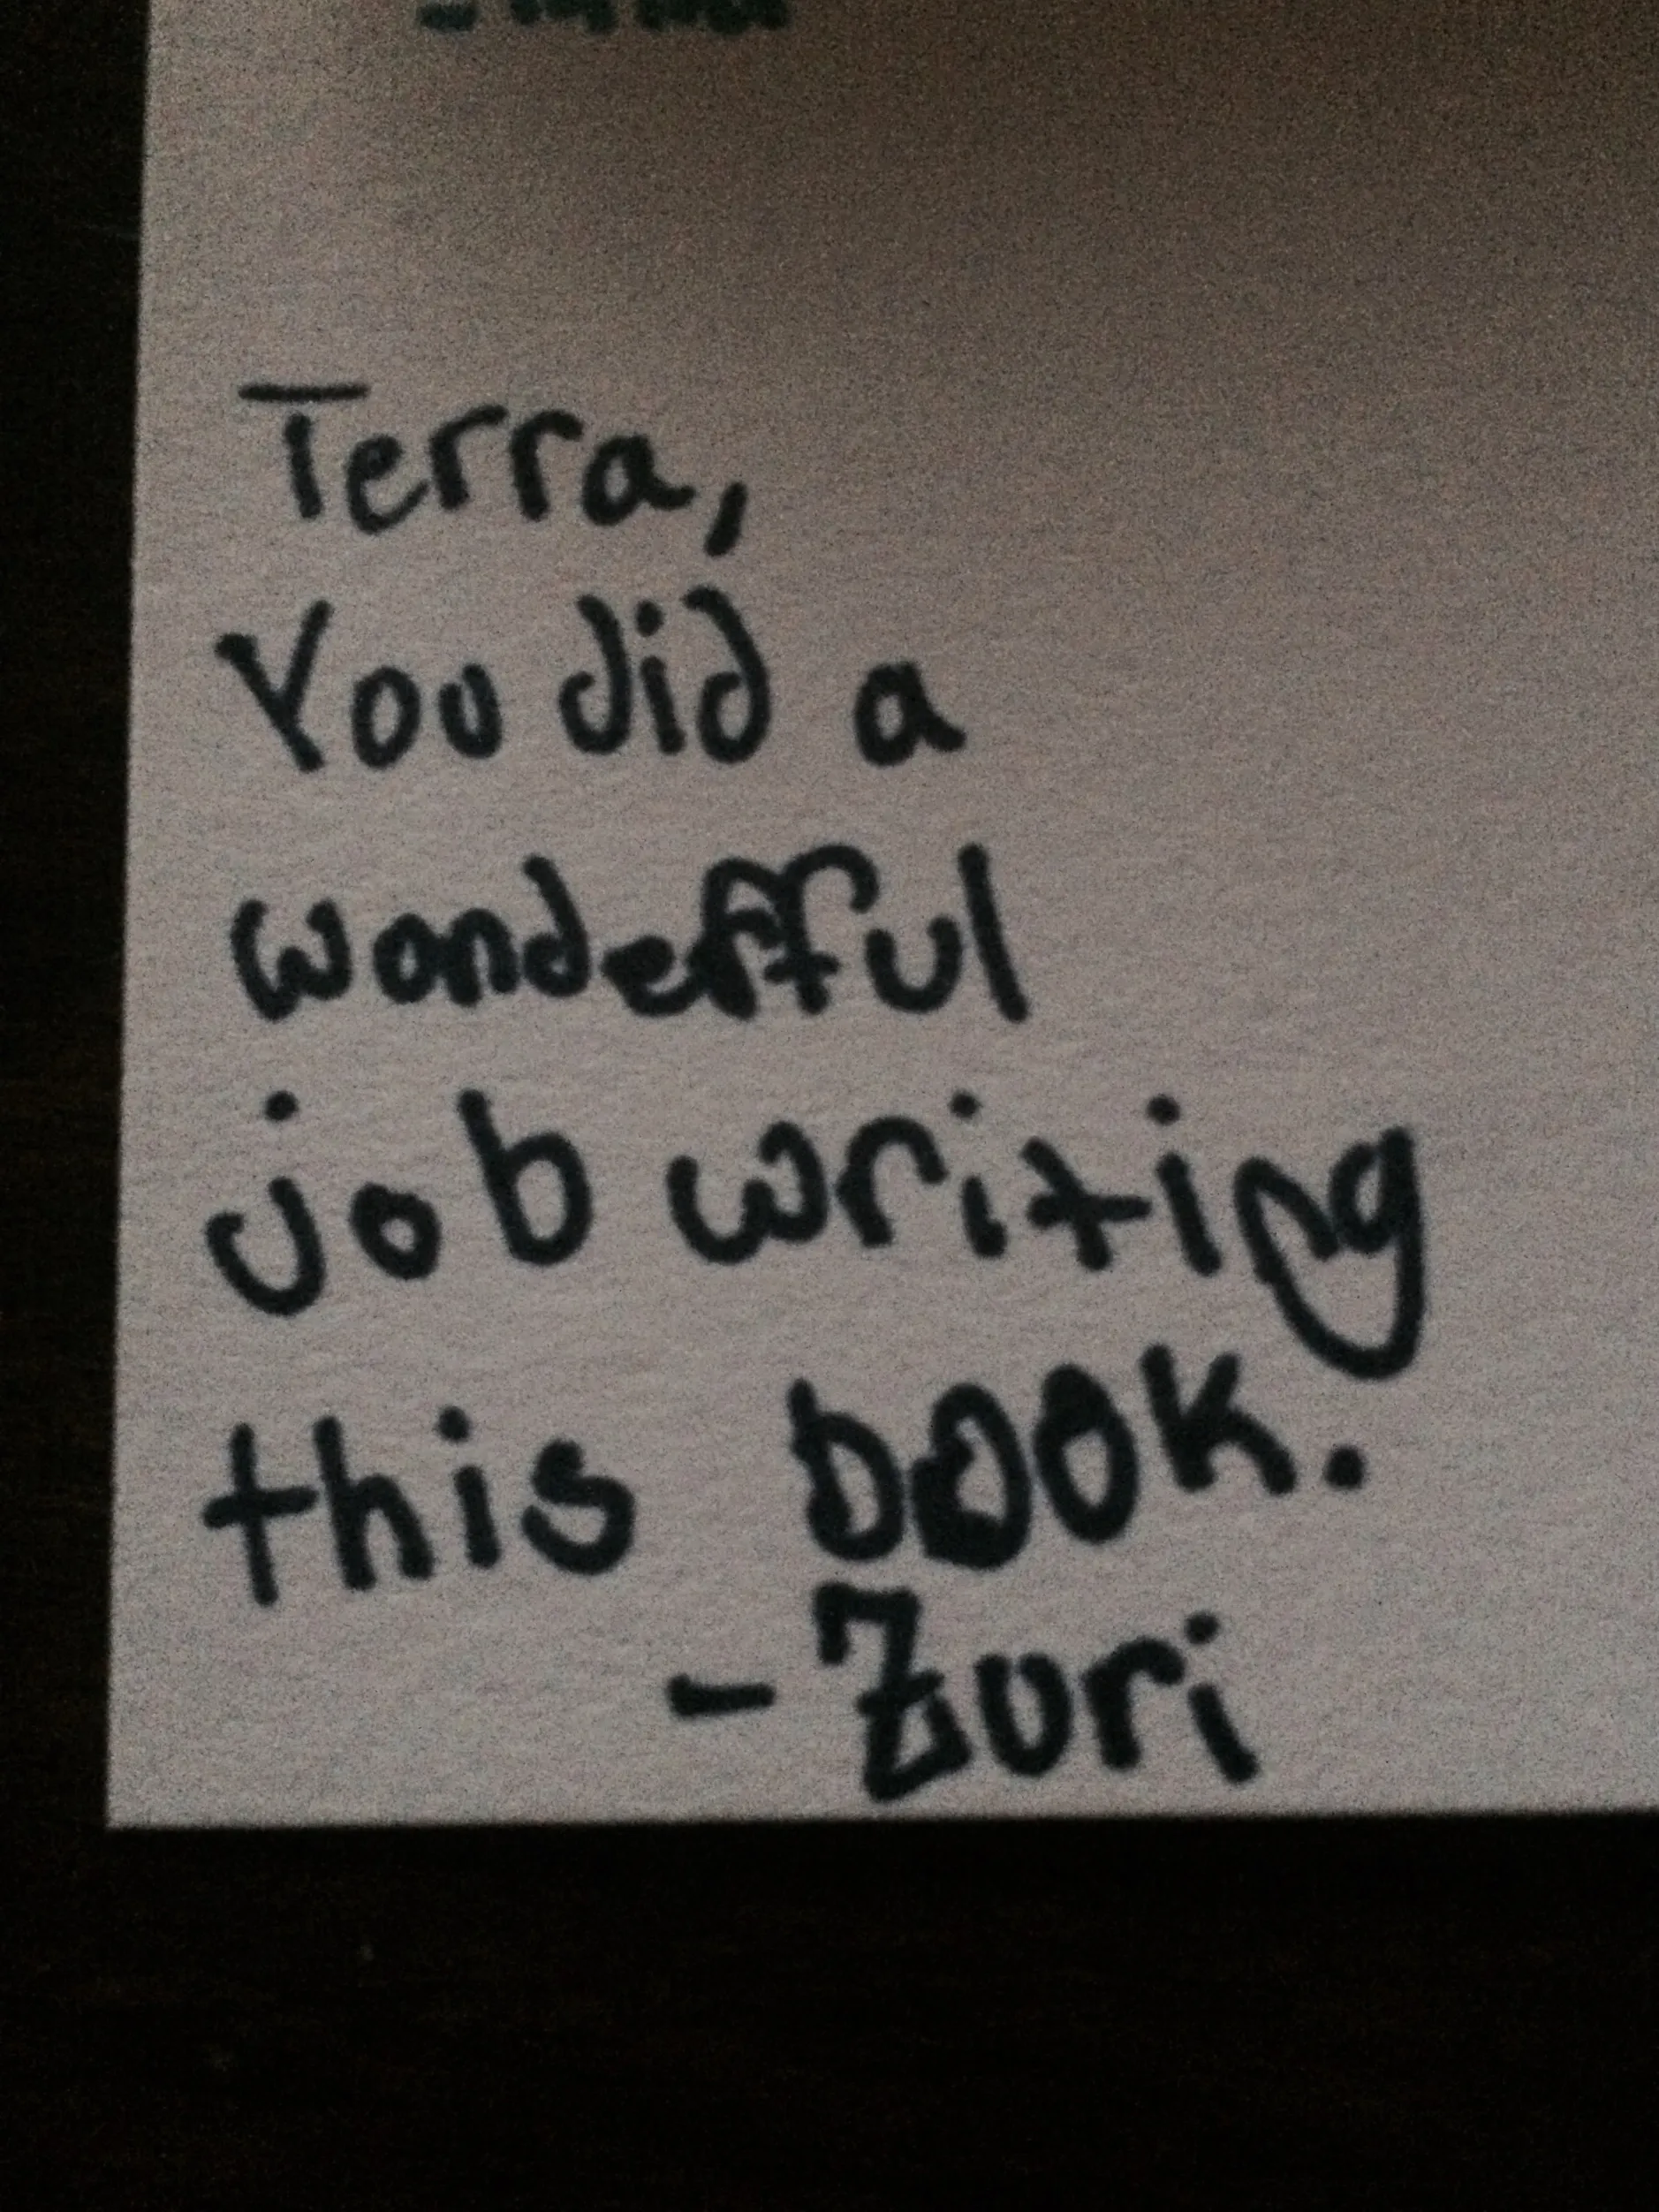 Terra,
You did a
wonderful
job writing
this book.
-Zuri